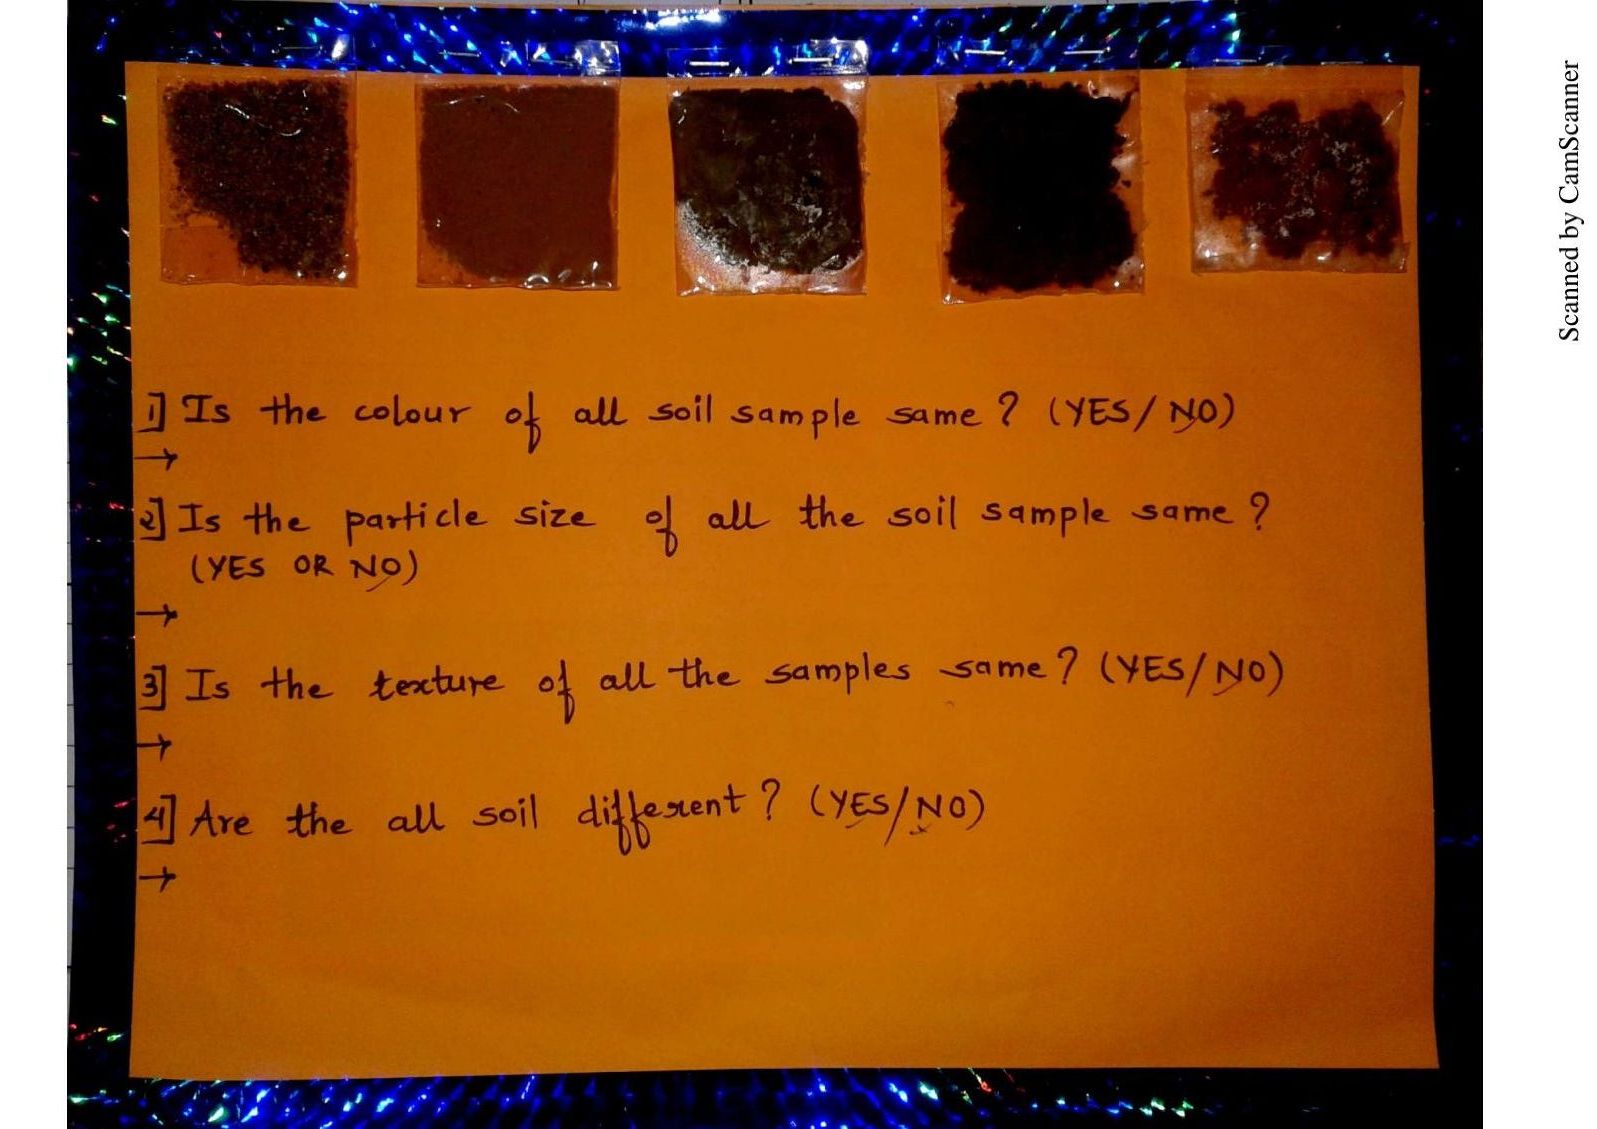 1] Is the colour of all soil sample same? (YES/NO)
→
2] Is the particle size of all the soil sample same?
(YES OR NO)
→
3] Is the texture of all the samples same? (YES/NO)
→
4] Are the all soil different? (YES/NO)
→
Scanned by CamScanner